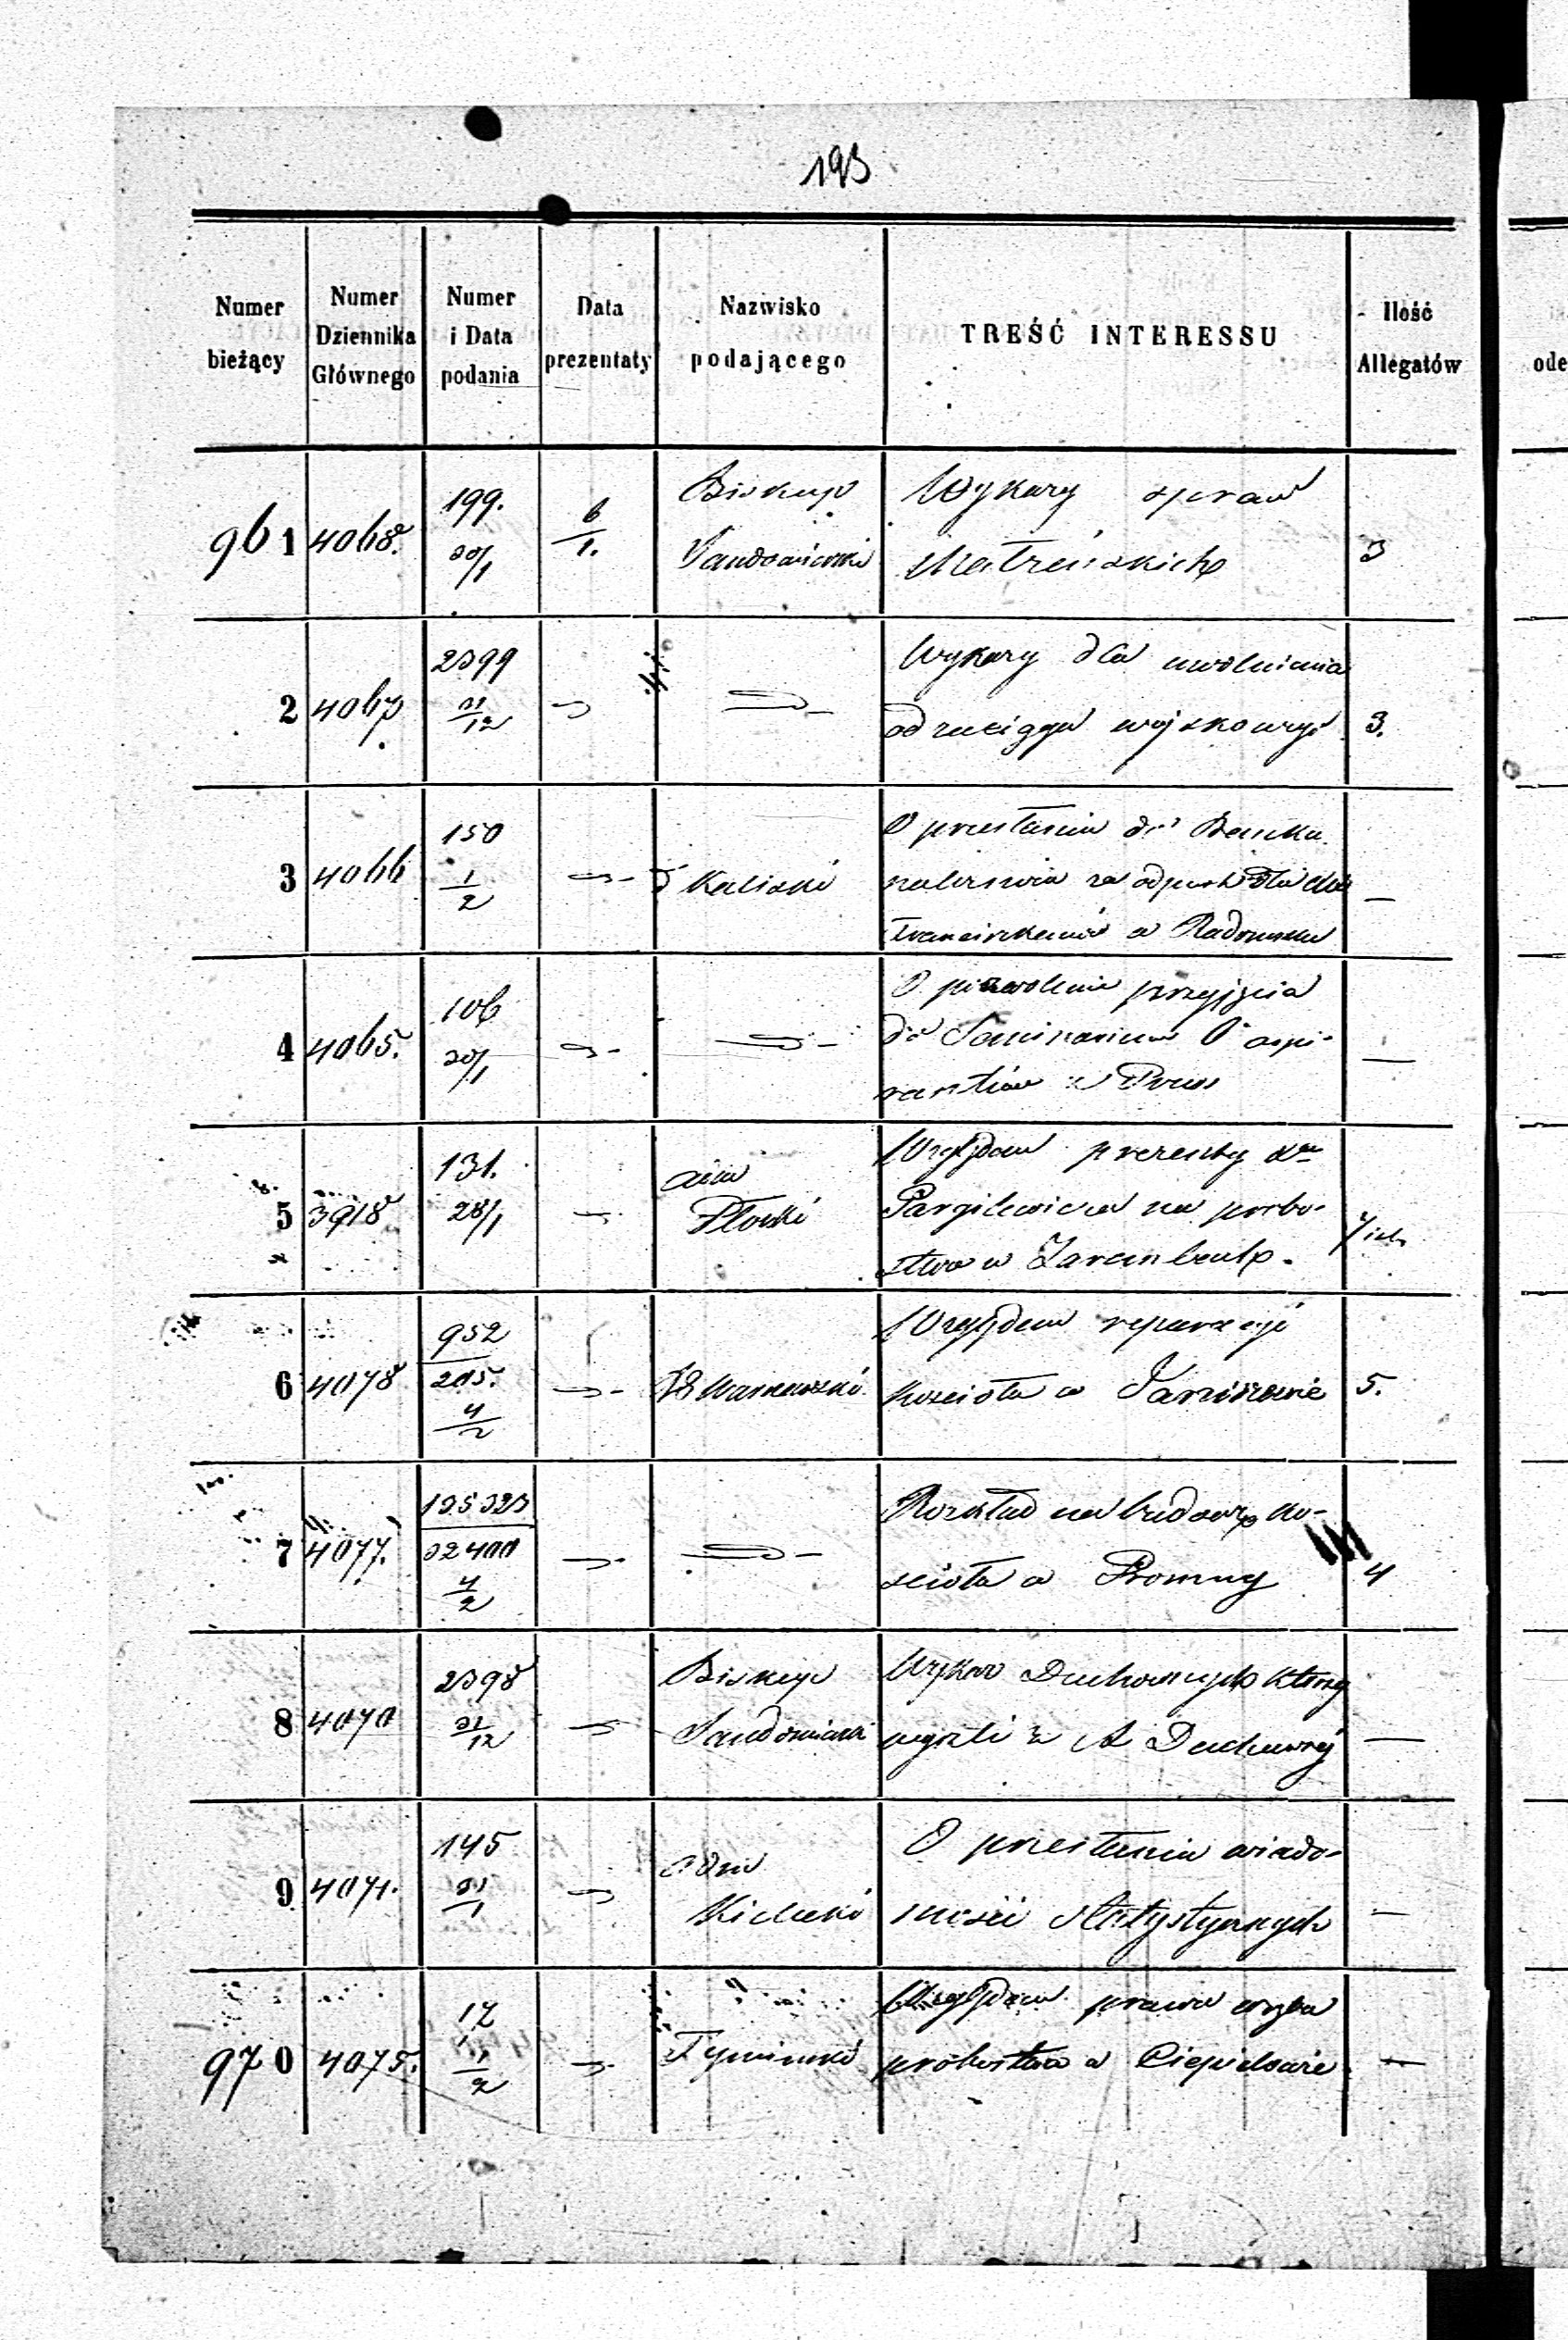 193
Numer bieżący
Numer Dziennika Głównego
Numer i Data podania
Data prezentaty
Nazwisko podającego
TREŚĆ INTERESSU
Ilość Allegatów
ode
961 4068. 199. 30/1 6/1. Biskup Sandomierski Wykazy spraw
Małżeńskich 3
2 4067 2399 31/12 Wykazy dla uwolnienia
od zaciągu wojskowego 3.
3 4066 150 1/2 Kaliski O przesłaniu do Banku
należności za odpust dla
Franciszkanów w Radomsku —
4 4065. 106 30/1 O pozwolenie przyjęcia
do Seminarium aspi-
rantów z Prus —
5 3918 131. 28/1 Adm Płocki Względem prezenty
na probo-
stwo w Zarembach.
6 4078 952 205. 4/2 Warszawski Względem reperacji
Kościoła w Janiszewie 5.
7 4077. 135323 32400 4/2 Rozkład na budowę ko-
ścioła w Promny 4
8 4070 2398 31/12 Biskup Sandomierski Wykaz Duchownych którzy
wyszli z A Duchownej —
9 4071. 145 31/1 Adm Kielecki O przesłaniu wiado-
mości statystycznych —
970 4075. 17 1/2 Tymiński Względem prawa
probostwa w Ciepielowie —